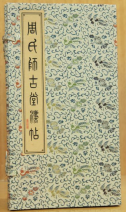 周氏師古堂法帖